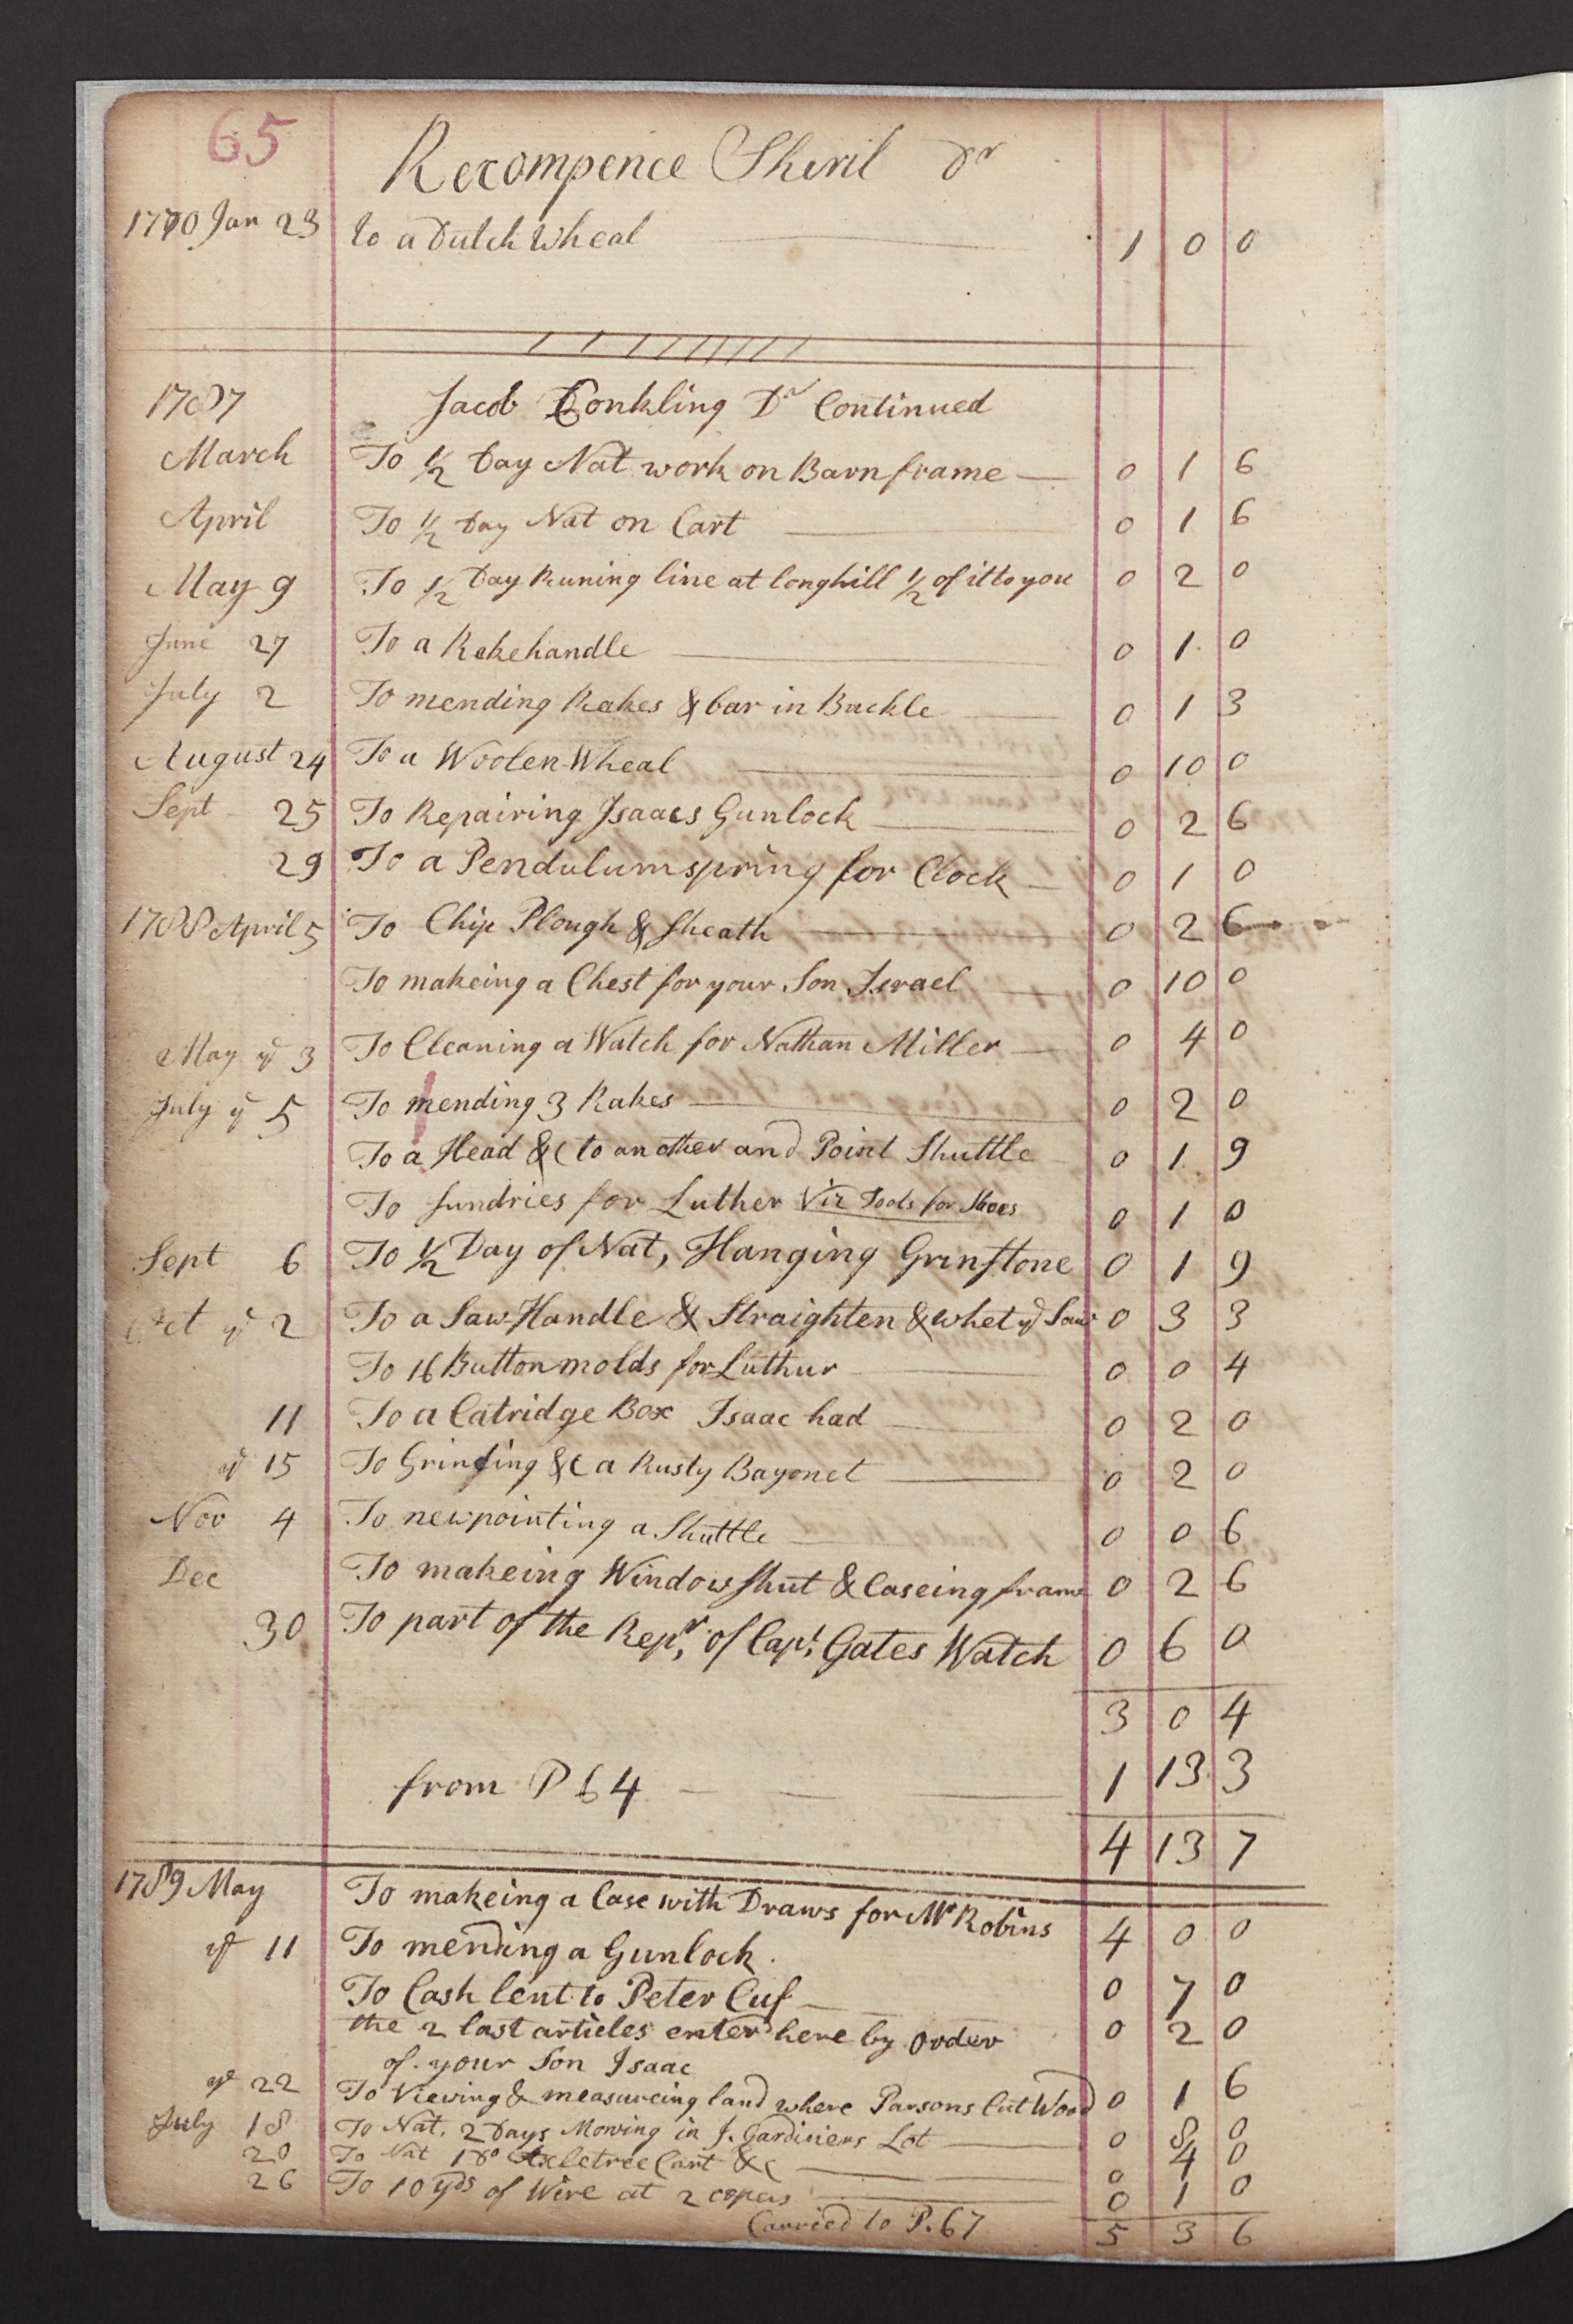 65
Recompence Sheril Dr
1770 Jan 23 to a Dutch Wheal 1 0 0
1787 Jacob Conkling Dr Continued
March To 1/2 Day Nat work on Barn frame 0 1 6
April To 1/2 Day Nat on Cart 0 1 6
May 9 To 1/2 Day Runing line at longhill 1/2 of it to you 0 2 0
June 27 To a Rakehandle 0 1 0
July 2 To mending Rakes & bar in Buckle 0 1 3
August 24 To a Woolen Wheal 0 10 0
Sept 25 To Repairing Isaacs Gunlock 0 2 6
29 To a Pendulum spring for Clock 0 1 0
1788 April 5 To Chip Plough & Sheath 0 2 6
To makeing a Chest for your Son Israel 0 10 0
May ye 3 To Cleaning a Watch for Nathan Miller 0 4 0
July ye 5 To mending 3 Rakes 0 2 0
To a Head &c to another and Point Shuttle 0 1 9
To Sundries for Luther Viz Tools for Shoes 0 1 0
Sept 6 To 1/2 Day of Nat, Hanging Grinstone 0 1 9
Oct ye 2 To a Saw Handle & Straighten & whet ye Saw 0 3 3
To 16 Button molds for Luthur 0 0 4
11 To a Catridge Box Isaac had 0 2 0
ye 15 To Grinding &c a Rusty Bayonet 0 2 0
Nov 4 To new pointing a Shuttle 0 0 6
Dec To makeing Window Shut & Caseing frame 0 2 6
30 To part of the Repr, of Capt, Gates Watch 0 6 0
3 0 4
from P 64 1 13 3
4 13 7
1789 May To makeing a Case with Draws for Mr Robins 4 0 0
ye 11 To mending a Gunlock. 0 7 0
To Cash lent to Peter Cuf 0 2 0
the 2 last articles enterd here by order
of your Son Isaac
ye 22 To Viewing & measureing land where Parsons Cut Wood 0 1 6
July 18 To Nat. 2 Days Mowing in J. Gardiners Lot 0 8 0
20 To Nat 1 Do Axletree Cart &c 0 4 0
26 To 10 yds of Wire at 2 copers 0 1 0
Carried to P. 67 5 3 6